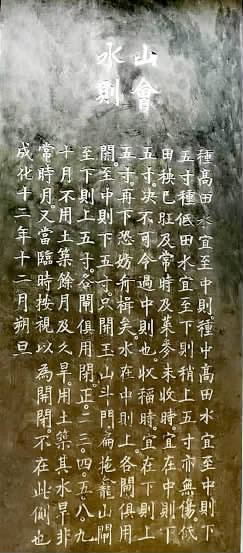 山會
水則
種高田水宜至中則種中高田水宜至中則下
五寸種低田水宜至下則稍上五寸亦無傷低
田秧已旺及常時及菜麥未收時宜在中則下
五寸決不可令過中則也收稻時宜在下則上
五寸再下恐妨舟楫矣水在中則上各閘俱用
開至中則下五寸只開玉山斗門扁拖龕山閘
至下則上五寸各閘俱用閉正二三四五八九
十月不用土築餘月及久旱用土築其水旱非
常時月又當臨時按視以為開閉不在此側也
成化十二年十二月朔旦